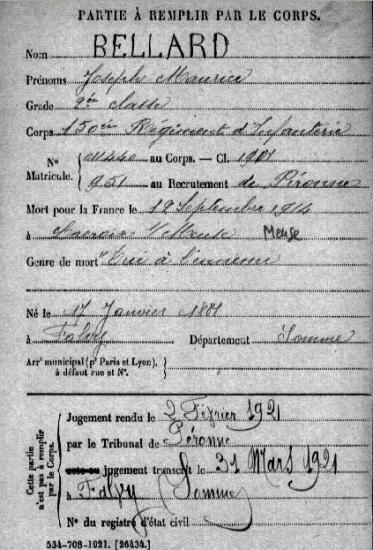 PARTIE À REMPLIR PAR LE CORPS.
Nom BELLARD
Prénoms Joseph Maurice
Grade 2ème classe
Corps 150ème Régiment d'Infanterie
N° Matricule. au Corps. — Cl. 1901
951 au Recrutement de Péronne
Mort pour la France le 12 Septembre 1914
à Meuse
Genre de mort Tué à l'ennemi
Né le 17 Janvier
à Falvy Département Somme
Arrt municipal (pr Paris et Lyon),
à défaut rue et N°.
Cette partie n'est pas à remplir par le Corps.
Jugement rendu le 2 Février 1921
par le Tribunal de Péronne
jugement transcrit le 31 Mars 1921
à Falvy (Somme)
N° du registre d'état civil
534-708-1921. [26434.]